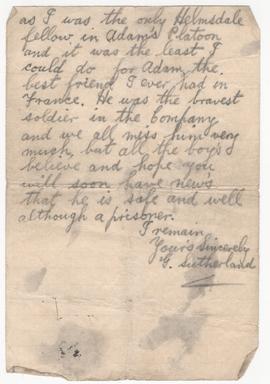 as I was the only Helmsdale
fellow in Adam's Platoon
and it was the least I
could do for Adam, the
best friend I ever had in
France. He was the bravest
soldier in the Company
and we all miss him very
much, but all the boys
believe and hope you
will soon have news
that he is safe and well
although a prisoner.
I remain
Yours Sincerely
G. Sutherland